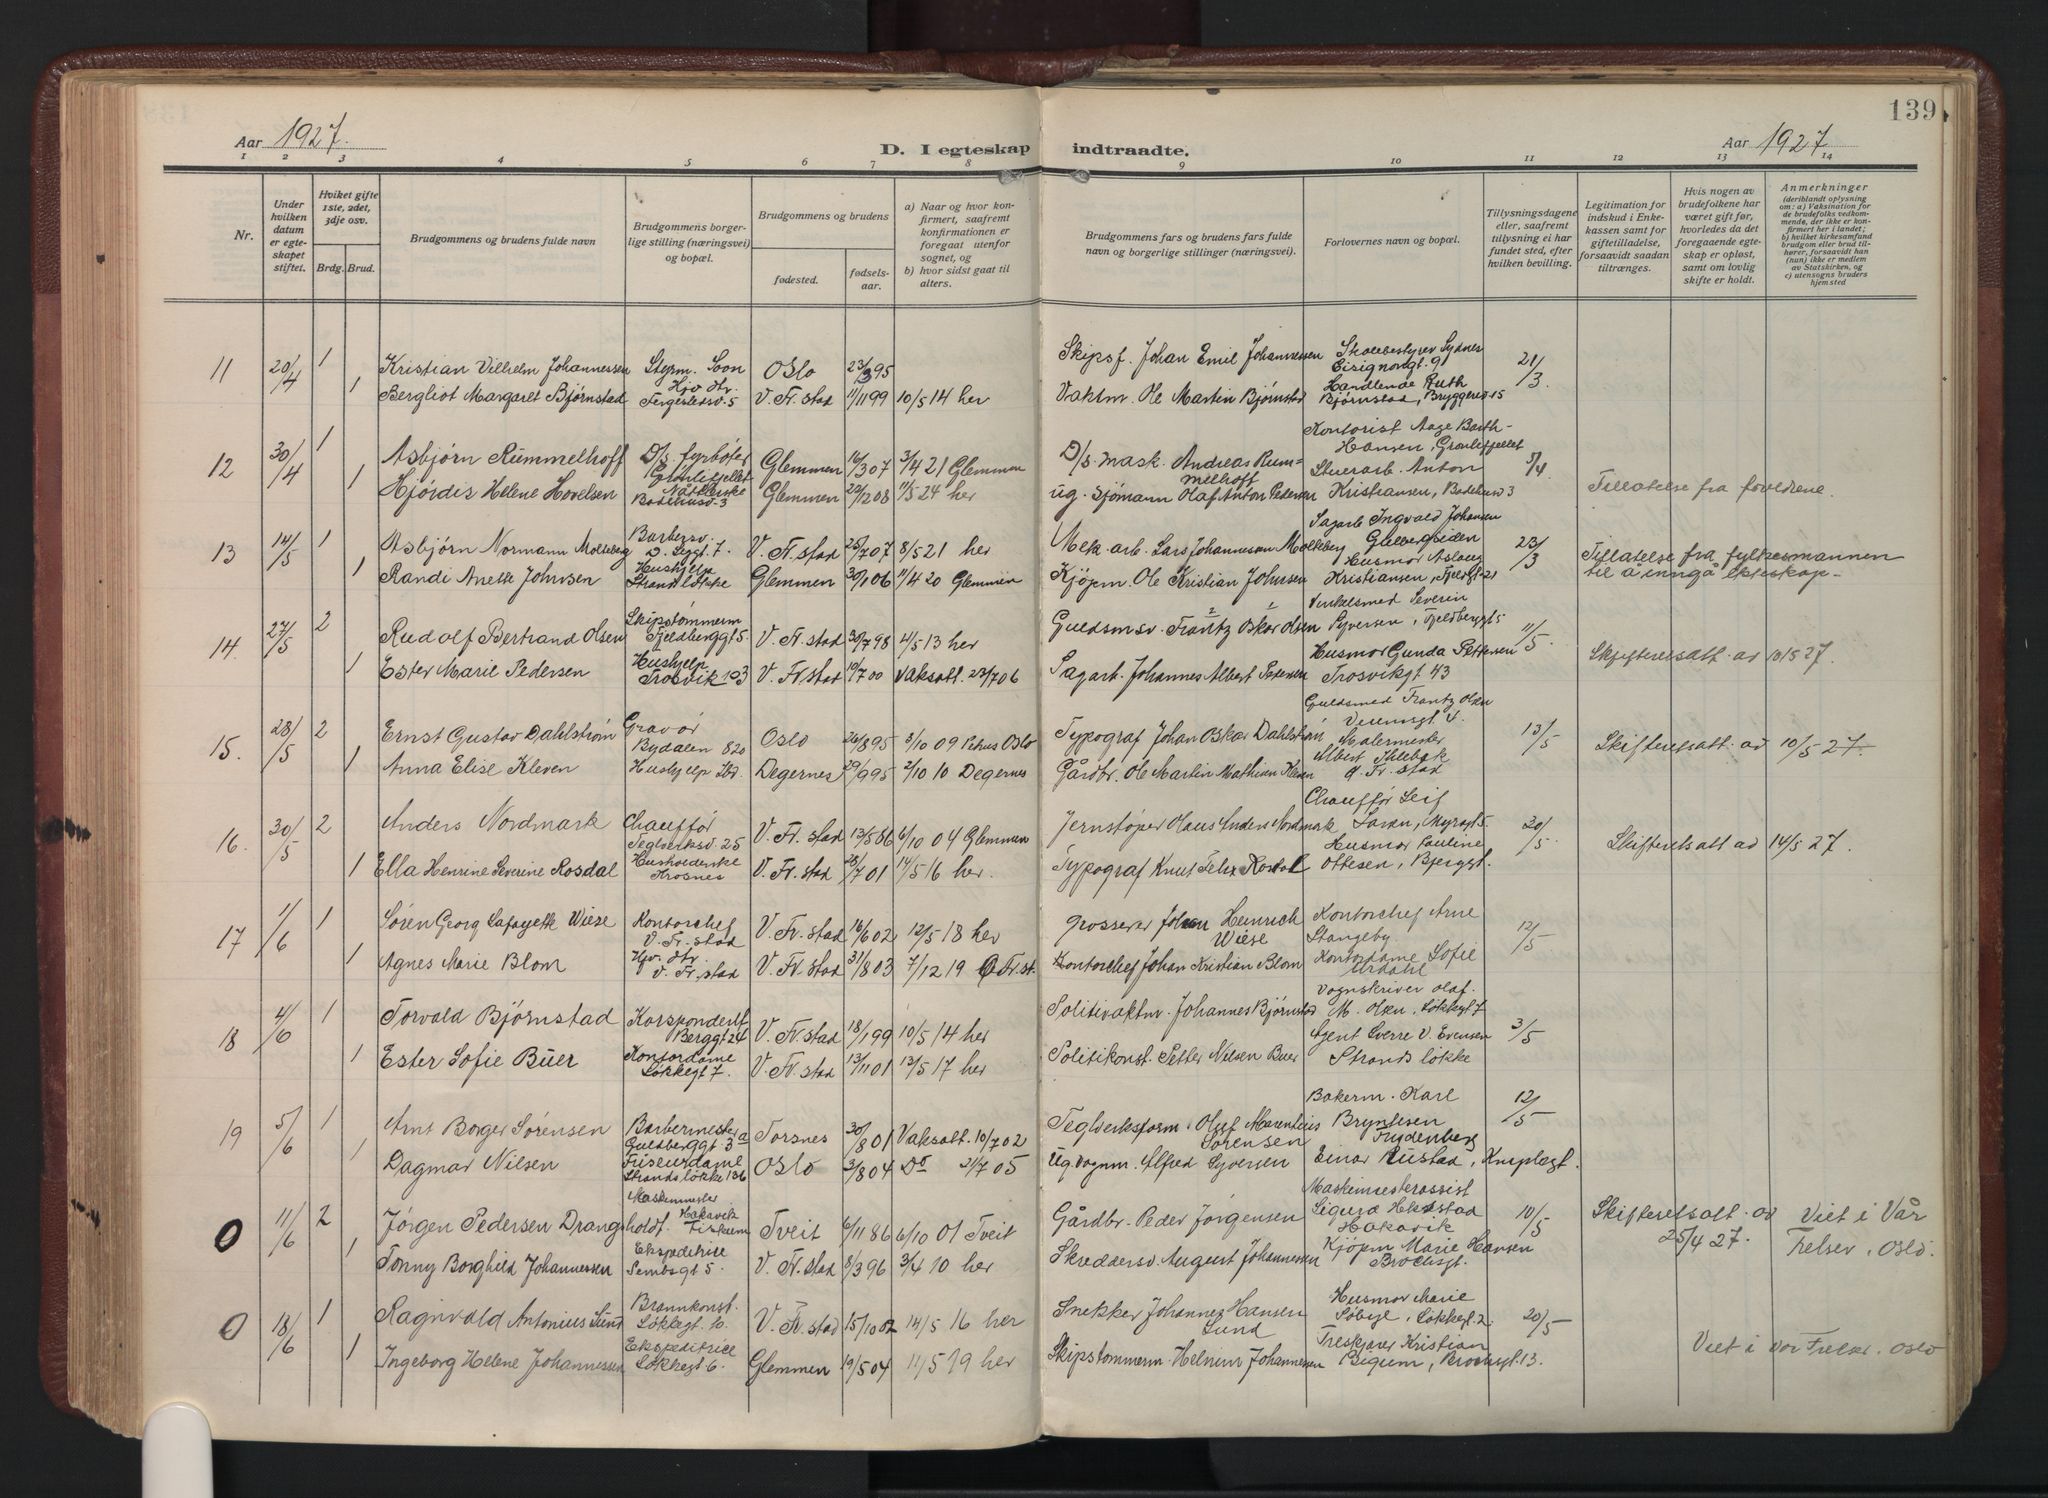 139
Aar 1927.
D. I egteskap indtraadte.
Aar 1927
1 2 3 4 5 6 7 8 9 10 11 12 13 14
Nr.
Under hvilken datum er egteskapet stiftet.
Hviket gifte 1ste, 2det, 3dje osv.
Brdg. Brud.
Brudgommens og brudens fulde navn
Brudgommens borgerlige stilling (næringsvei) og bopæl.
Brudgommens og brudens
fødested.
fødselsaar.
a) Naar og hvor konfirmert, saafremt konfirmationen er foregaat utenfor sognet, og
b) hvor sidst gaat til alters.
Brudgommens fars og brudens fars fulde navn og borgerlige stillinger (næringsvei).
Forlovernes navn og bopæl.
Tillysningsdagene eller, saafremt tillysning ei har fundet sted, efter hvilken bevilling.
Legitimation for indskud i Enkekassen samt for giftetilladelse, forsaavidt saadan tiltrænges.
Hvis nogen av brudefolkene har været gift før, hvorledes da det foregaaende egteskap er opløst, samt om lovlig skifte er holdt.
Anmerkninger (deriblandt oplysning om: a) Vaksination for de brudefolks vedkommende, der ikke er konfirmert her i landet; b) hvilket kirkesamfund brudgom eller brud tilhører, forsaavidt han (hun) ikke er medlem av Statskirken, og c) utensogns bruders hjemsted
11 20/4 1 Kristian Vilhelm Johannessen Styrm. Soon Oslo 23/3 95 Skipsf. Johan Emil Johannessen Skolebestyrer Sydnes 21/3.
1 Bergliot Margaret Bjørnstad Hjv Htr. V. Fr. stad 11/11 99 10/5 14 her Vaktm. Ole Martin Bjørnstad Handlende Ruth Bjørnstad, Bryggeriv 15
12 30/4 1 Asbjørn Rummelhoff D/s. fyrbøter Grønlifjellet Glemmen 16/3 07 3/4 21 Glemmen D/s. mask. Andreas Rummelhoff Kontorist Aage Barth-Hansen, Grønlifjellet 3/4
1 Hjørdis Helene Hovelsen Bodehusv. 3 Glemmen 22/12 08 11/5 24 her ug. Sjömann Olaf Anton Pedersen Stuerarb. Anton Kristiansen, Bodehusv 3 Tillatelse fra foreldrene.
13 14/5 1 Asbjørn Normann Molteberg Barbersv. V. Fr. stad 25/7 07 8/5 21 her Mek. arb. Lars Johannessen Molteberg Sagarb Ingvald Johansen Gulbergsiden 23/3 Tillatelse fra fylkesmannen til å inngå ekteskap-
1 Randi Anette Johnsen Hushjelp Strandsløkke Glemmen 30/1 06 11/4 20 Glemmen Kjøpm. Ole Kristian Johnsen Husmor Aslaug Kristiansen, Fjeldgt. 21
14. 27/5 2 Rudolf Bertrand Olsen Skipstømmerm Fjeldberggt 5. V. Fr. stad 30/7 98 4/5 13 her Guldsmsv. Frantz Oskar Olsen Severin Syversen, Fjeldberggt 5 11/5.
1 Ester Marie Pedersen Hushjelp Trosvik 103 V. Fr. stad 10/7 00 Vaksatt. 23/7 06 Sagarb. Johannes Albert Pedersen Husmor Gunda Pettersen Trosvikgt 43 Skifteretsatt. av 10/5 27.
15. 28/5 2 Ernst Gustav Dahlstrøm Gravör Bydalen 820 Oslo 26/8 95 3/10 09 Petrus Oslo Typograf Johan Oskar Dahlstrøm Guldsmed Frantz Olsen 13/5 Skifteretsatt. av 10/5 27.
1 Anna Elise Kleven Hushjelp Ibd. Degernes 29/9 95 2/10 10 Degernes Gårdbr. Ole Martin Mathisen Kleven Malermester Albert Fr. stad
16. 30/5 2 Anders Nordmark Chauffør Teglverksv. 25 V. Fr. stad 13/5 86 6/10 04 Glemmen Jernstøper Hans Anders Nordmark Chauffør Leif Larsen, Myragt 5. 20/5. Skifteretsatt av 14/5 27.
1 Ella Henrine Severine Rosdal Husholderske Krosnes V. Fr. stad 28/7 01 14/5 16 her. Typograf Knut Felix Rosdal Husmor Pauline Ottesen, Bjerggt.
17 1/6 1 Søren Georg Lafayette Wiese Kontorchef V. Fr. stad V. Fr. stad 16/6 02 12/5 18 her Grosserer Johan Heinrich Wiese Kontorchef Arne Stangeby 12/5
1 Agnes Marie Blom Hjv. Htr. V. Fr. stad V. Fr. stad 31/8 03 7/12 19 Ø Fr. st. Kontorchef Johan Kristian Blom Kontordame Sofie Urdahl
18 4/6 1 Torvald Bjørnstad Korspondent Berggt 24 V. Fr. stad 18/1 99 10/5 14 her Politivaktm. Johannes Bjørnstad Vognskriver Olaf M. Olsen, Løkkegt 7 3/5
1 Ester Sofie Buer Kontordame Løkkegt 7. V. Fr. stad 13/11 01 13/5 17 her Politikonst. Petter Nilsen Buer Agent Sverre V. Evensen Strands løkke
19 5/6 1 Arnt Borger Sørensen Barbermester Guldberggt. 3a Torsnes 30/8 01 Vaksatt. 10/7 02 Teglverksform. Oluf Marentius Sørensen Bakerm. Karl Bryntesen Frydenberg 12/5
1 Dagmar Nilsen Friseurdame Strandsløkke 136 Oslo 3/8 04 Do 21/7 05 ug. vognm. Alfred Syversen Einar Rustad, Kniplegt.
0 11/6 2 Jørgen Pedersen Drangsholdt. Maskinmester Hakavik Fiskum Tveit 6/11 86 6/10 01 Tveit Gårdbr. Peder Jørgensen Maskinmesterassist Sigurd Hakavik 10/5 Skifteretsatt. av 25/4 27. Viet i Vår Frelser, Oslo.
1 Tonny Borghild Johannessen Ekspeditrise Sembsgt 5. V. Fr. stad 8/3 96 3/4 10 her Skreddersv. August Johannessen Kjöpm Marie Hansen Brochsgt.
0 18/6 1 Ragnvald Antonius Lund Brannkonst. Løkkegt. 10. V. Fr. stad 15/10 02 14/5 16 her Snekker Johannes Hansen Lund Husmor Marie Løkkegt. 2. 20/5
1 Ingeborg Helene Johannessen Ekspeditrice Løkkegt 6. Glemmen 19/5 04 11/5 19 her Skipstømmerm. Helnim Johannessen Treskjærer Kristian Bigum, Brochsgt. 13. Viet i vor Frelser. Oslo